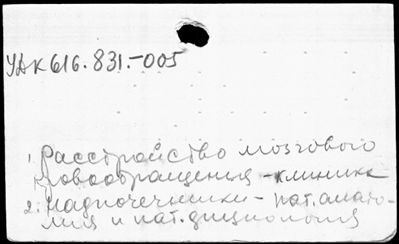 УДК 616.831.-005
1. Расстройство мозгового
кровообращения - клиника
2. Надпочечники - пат. анато-
мия и пат. физиология